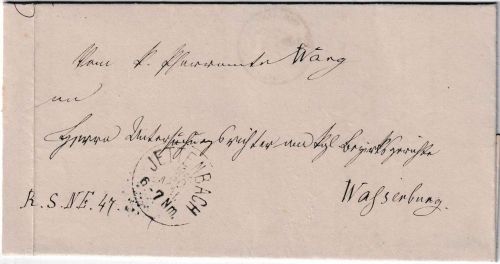 Vom k. Pfarramte Wang
an
Herrn Untersuchungsrichter am kgl. Bezirksgerichte
JETTENBACH
6-7 Nm.
Wasserburg.
R. S. № 47.